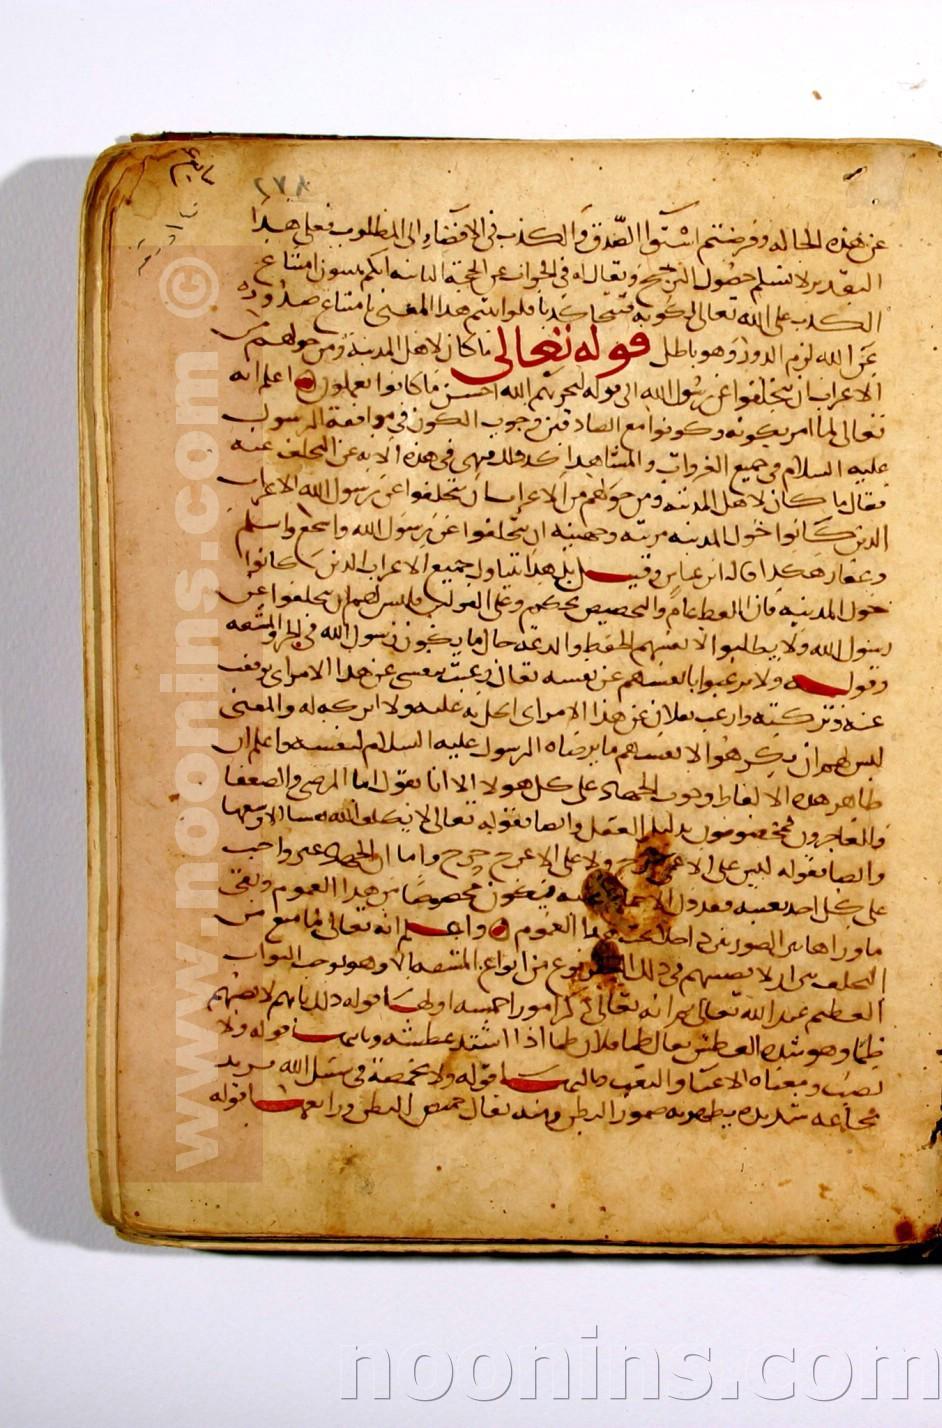 عن هذه الحالة وفرضتم استوا الصدق والكذب في الافضاء الى المطلوب فعلى هذا
التقدير لا نسلم حصول الترجيح ويقال له في الجواب عن الحجة الثانية انكم تثبتون امتناع
الكذب على الله تعالى لكونه قبيحا كذبا فلو اثبتم هذا المعنى بامتناع صدوره
عن الله لزم الدور وهو باطل قوله تعالى ما كان لاهل المدينة ومن حولهم من
الاعراب ان يتخلفوا عن رسول الله الى قوله ليجزيهم الله احسن ما كانوا يعملون اعلم انه
تعالى لما امر بكونه وكونوا مع الصادقين وجوب الكون في موافقة الرسول
عليه السلام في جميع الغزوات والمشاهد اكد ذلك فنهى في هذه الاية عن التخلف عنه
فقال ما كان لاهل المدينة ومن حولهم من الاعراب ان يتخلفوا عن رسول الله الاعراب
الذين كانوا حول المدينة مزينة وجهينة ان يتخلفوا عن رسول الله واشجع واسلم
وغفار هكذا قاله ابن عباس وقيل بل هذا يتناول جميع الاعراب الذين كانوا
حول المدينة فان اللفظ عام والتخصيص تحكم وعلى القولين فليس لهم ان يتخلفوا عن
رسول الله ولا يطلبوا لانفسهم الحفظ والدعة حال ما يكون رسول الله في الحر والمشقة
وقوله ولا يرغبوا بانفسهم عن نفسه يقال رغبت بنفسي عن هذا الامر اي توقفت
عنه وتركته وارغب بفلان عن هذا الامر اي ابخل به عليه ولا اتركه له والمعنى
ليس لهم ان يكرهوا لانفسهم ما يرضاه الرسول عليه السلام لنفسه واعلم ان
ظاهر هذه الالفاظ وجوب الجهاد على كل هولا الا انا نقول اما المرضى والضعفا
والعاجزون فمخصوصون بدليل العقل وايضا بقوله تعالى لا يكلف الله نفسا الا وسعها
وايضا بقوله ليس على الاعمى حرج ولا على الاعرج حرج واما ان الجهاد غير واجب
على كل احد بعينه فقد دل الاجماع عليه فيكون مخصوصا من هذا العموم وبقي
ما ورا هاتين الصورتين داخلا تحت هذا العموم واعلم انه تعالى لما منع من
التخلف بين انه لا يصيبهم في ذلك السفر نوع من انواع المشقة الا وهو يوجب الثواب
العظيم عند الله تعالى ثم انه تعالى ذكر امورا خمسة اولها قوله ذلك بانهم لا يصيبهم
ظما وهو شدة العطش يقال ظما فلان ظما اذا اشتد عطشه وثانيها قوله ولا
نصب ومعناه الاعيا والتعب وثالثها قوله ولا مخمصة في سبيل الله يريد
مجاعة شديدة يظهر به ضمور البطن ومنه يقال خميص البطن ورابعها قوله
www.noonins.com ©
noonins.com